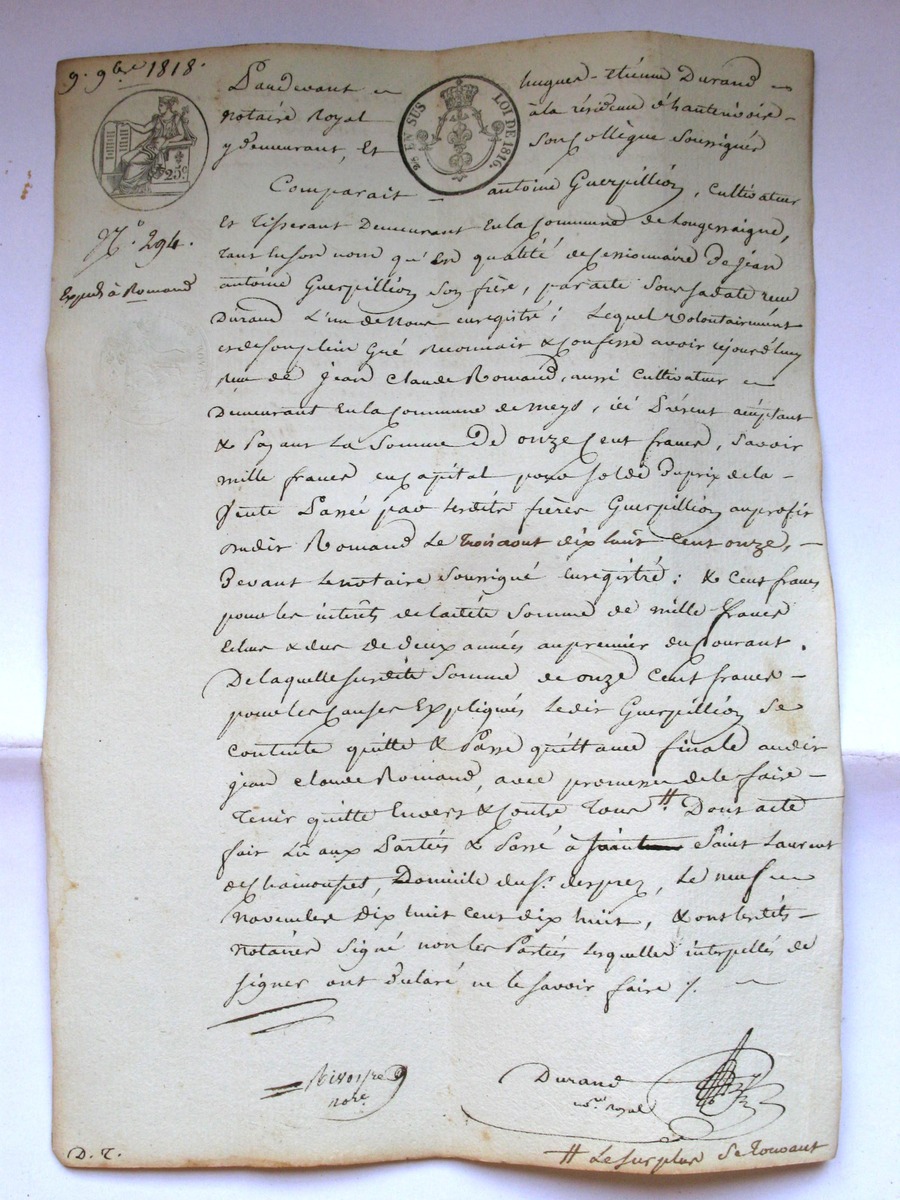 9. 9bre 1818.
Pardevant hugues-Etiénne Durand
notaire Royal à la résidence d'hauterivoire
y demeurant, Et Son Collègue Soussignés
EN SUS LOI DE 1816.
25c.
Comparait antoine Guerpillion, Cultivateur
Et Tisserant Demeurant En la Commune de Longessaigne,
N.o 294.
tant En son nom qu'En qualité de Cessionnaire de Jean
Expedié à Romand
antoine Guerpillion Son frère, par acte Sous sa date reçu
Durand L'un de Nous enregistré; Lequel volontairément
et de Son plein Gré Reconnait & Confesse avoir cejourd'huy
Reçu de Jean Claude Romand, aussi Cultivateur
Demeurant En la Commune de meys, ici Présent acéptant
& Payant La Somme De onze Cent francs, Savoir
mille francs en Capital pour Solde Du prix de la
Vente Passée par lesdits frères Guerpillion au profit
dudit Romand Le trois aout dix huit Cent onze,
Devant Le notaire Soussigné Enregistré; & Cent francs
pour les intérêts de ladite Somme de mille francs
Echus & dus de Deux années au premier du Courant.
De laquelle Susdite Somme de onze Cent francs
pour les Causes Expliqués Ledit Guerpillion Se
Contente quitte & Passe quittance finale audit
jean Claude Romand, avec promesse de le faire
Tenir quitte Envers & Contre Tous # Dont acte
fait Lu aux Partiés & Passé à Saint Laurent
de Chamousset, Domicile du Sr. desprez, Le neuf
novembre Dix huit Cent dix huit, & ont lesdits
Notaires Signé non les Partiés Lesquelles interpellés de
Signer ont Déclaré ne le Savoir faire /.
Rivoire
nore.
Durand
nore Royal
D. T.
# Le Surplus Se Trouvant